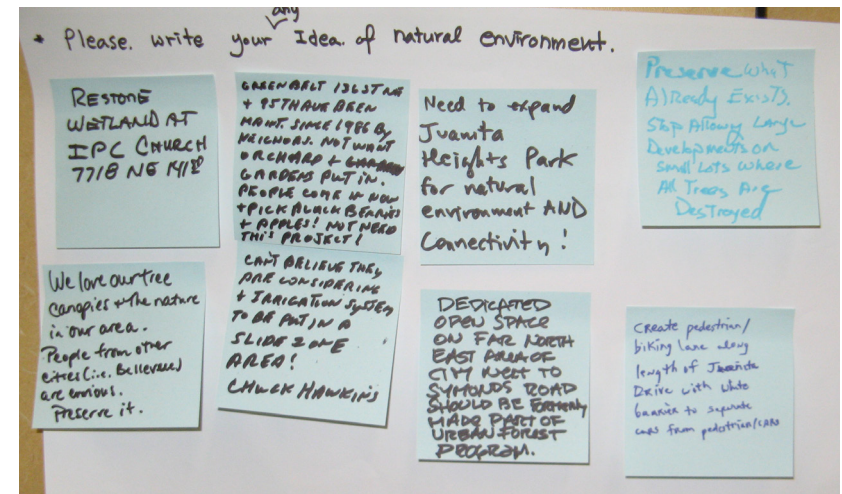 any
* Please. write your Idea. of natural environment.
RESTORE
WETLAND AT
IPC CHURCH
7718 NE 141ST
GREENBELT 136ST NE
+ 95TH AVE BEEN
MAINT. SINCE 1986 BY
NEIGHORS. NOT WANT
ORCHARD +
GARDENS PUT IN.
PEOPLE COME IN NOW
+ PICK BLACK BERRIES
+ APPLES! NOT NEED
THIS PROJECT!
Need to expand
Juanita
Heights Park
for natural
environment AND
Connectivity!
Preserve What
Already Exists.
Stop Allowing Large
Developments on
Small Lots where
All Trees Are
Destroyed
We love our tree
canopies + the nature
in our area.
People from other
cities (i.e. Bellevue)
are envious.
Preserve it.
CAN'T BELIEVE THEY
ARE CONSIDERING
+ IRRIGATION SYSTEM
TO BE PUT IN A
SLIDE ZONE
AREA!
CHUCK HAWKINS
DEDICATED
OPEN SPACE
ON FAR NORTH
EAST AREA OF
CITY NEXT TO
SYMONDS ROAD
SHOULD BE FORMALLY
MADE PART OF
URBAN FOREST
PROGRAM.
Create pedestrian/
biking lane along
length of Juanita
Drive with white
barrier to separate
cars from pedestrian/cars